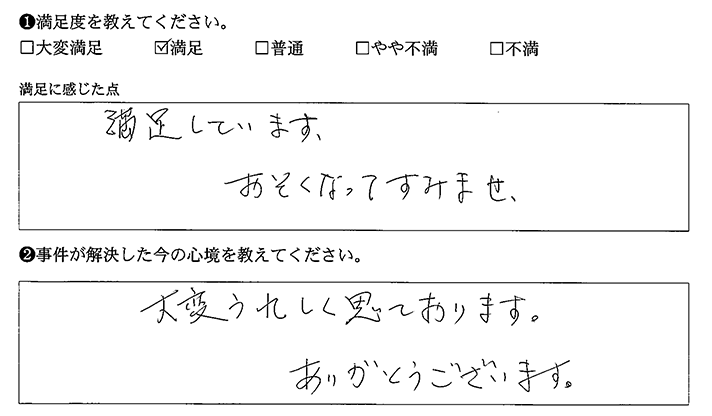 ❶満足度を教えてください。
□大変満足 ☑満足 □普通 □やや不満 □不満
満足に感じた点
満足しています、
おそくなってすみませ、
❷事件が解決した今の心境を教えてください。
大変うれしく思ております。
ありがとうございます。